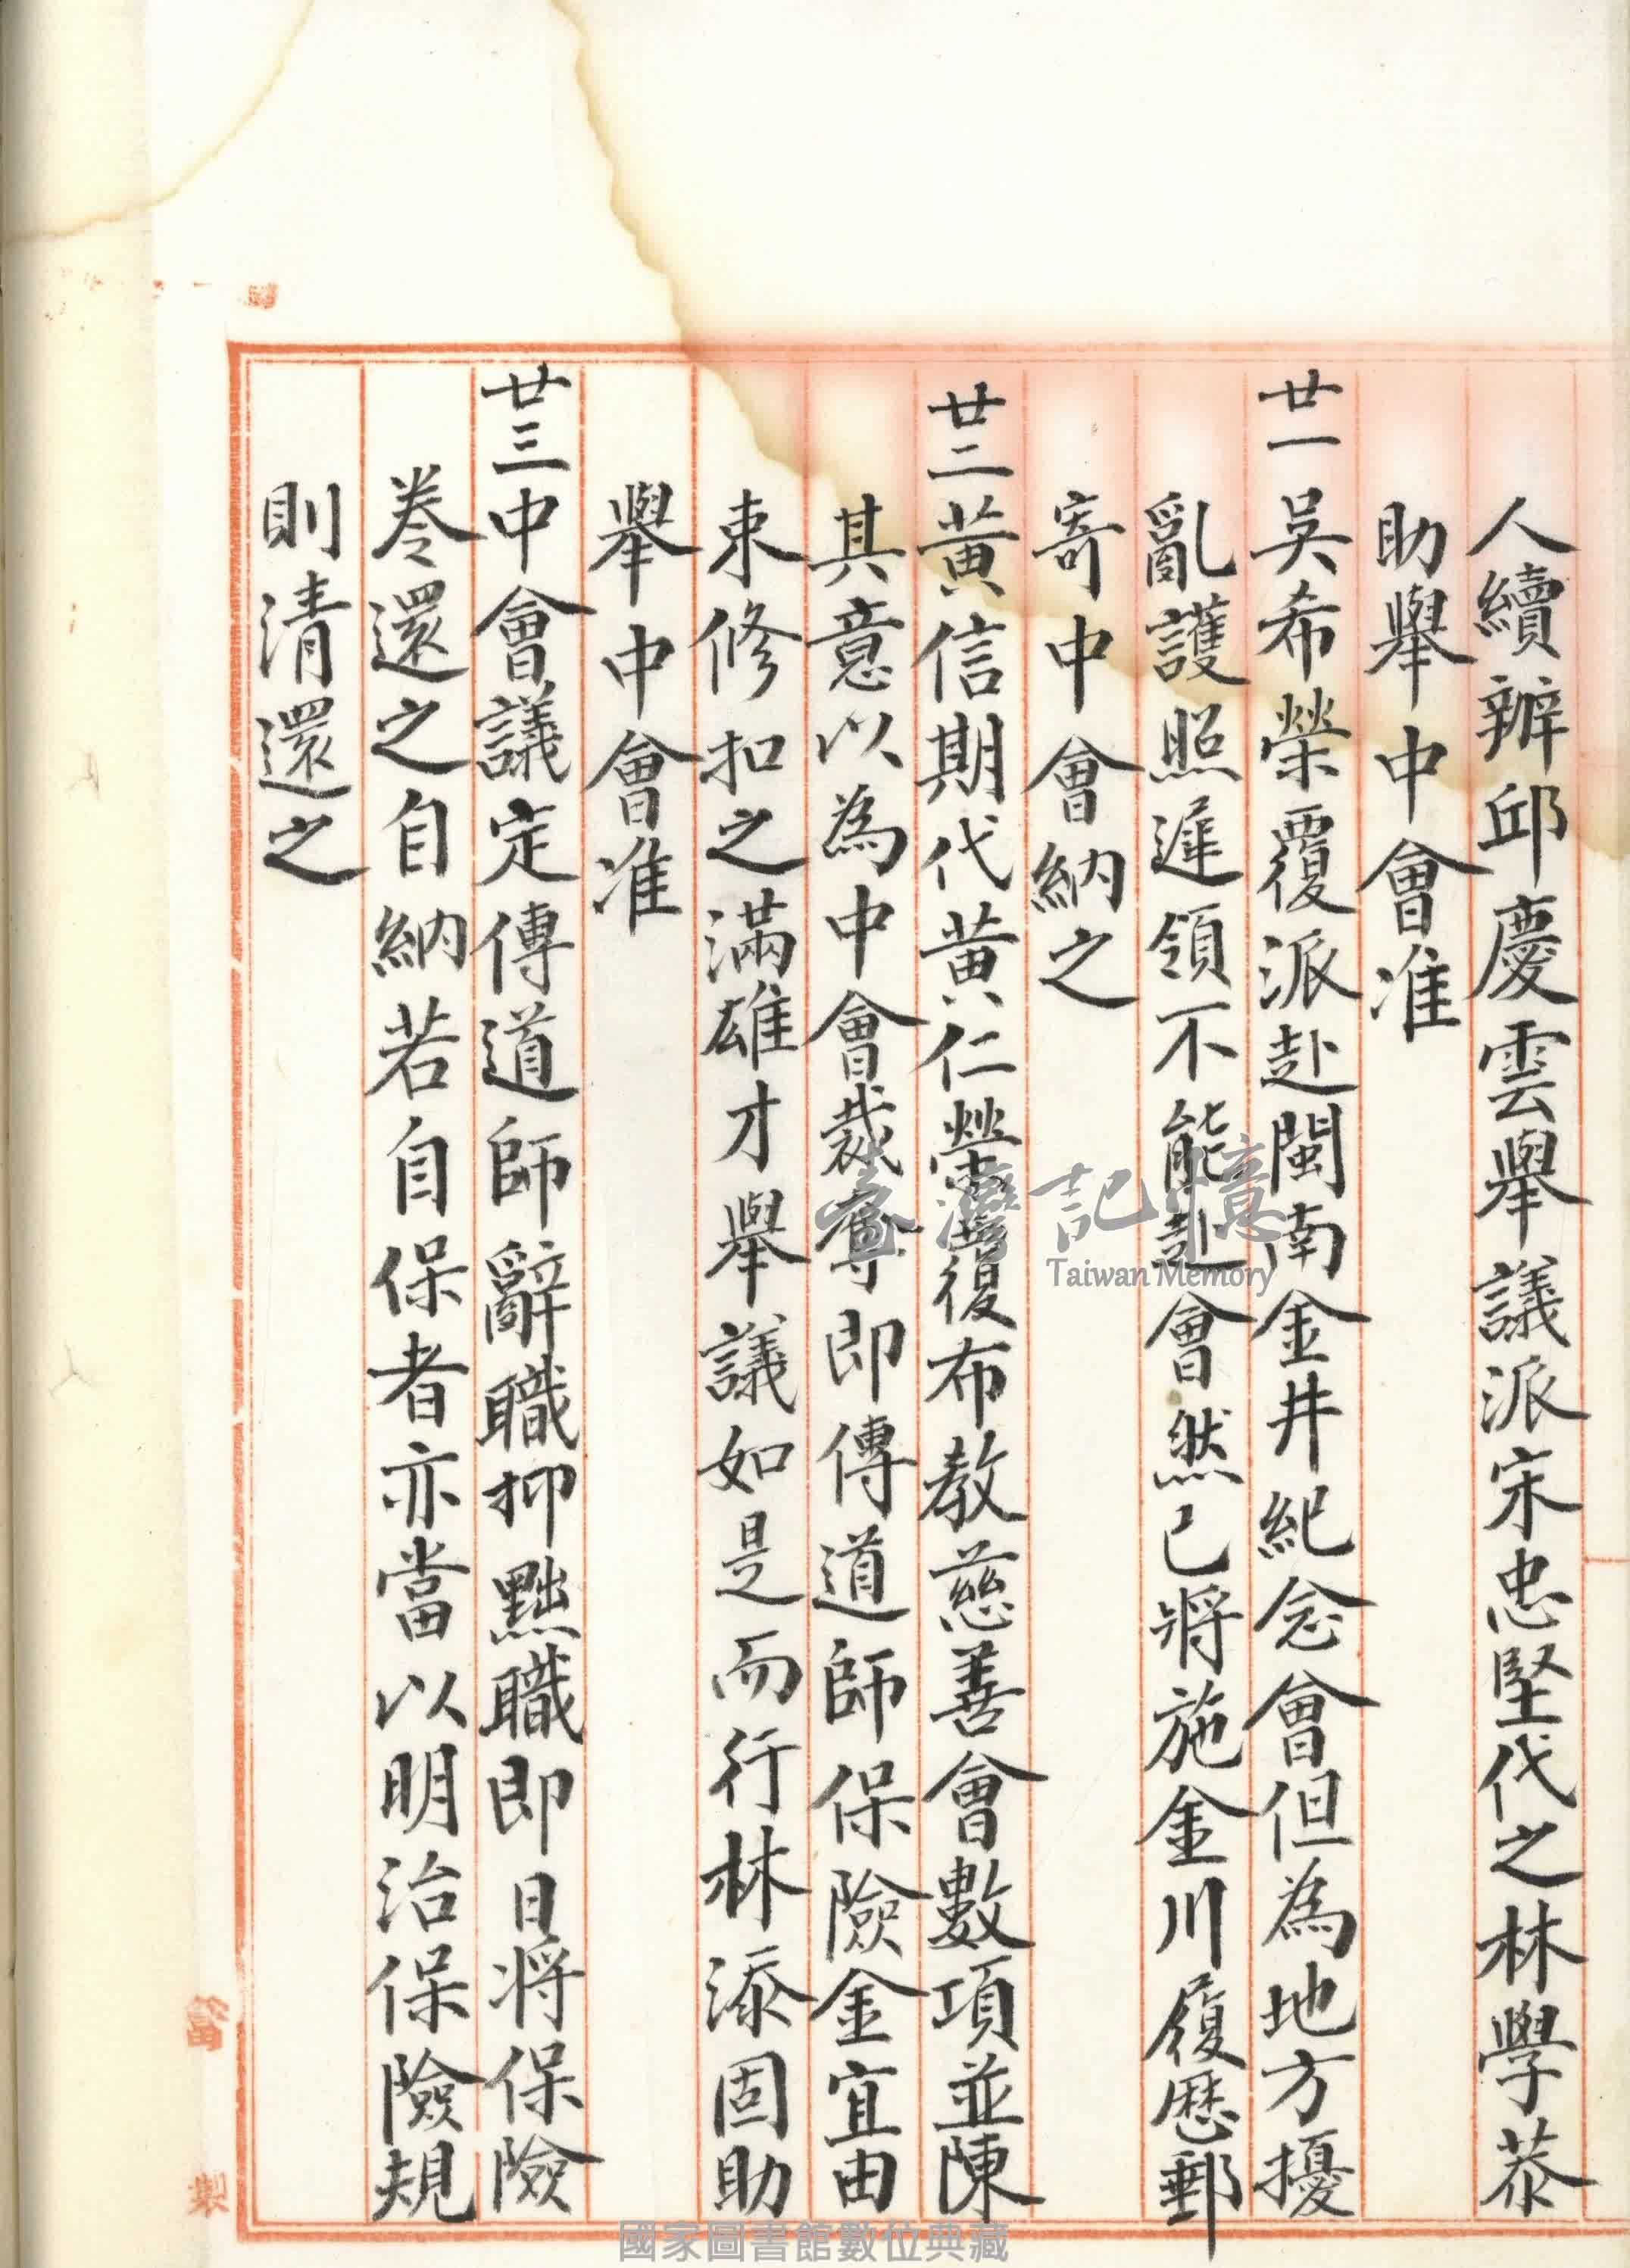 人續辦邱慶雲舉議派宋忠堅代之林學恭
助舉中會准
廿一吳希榮覆派赴閩南金井紀念會但為地方擾
亂護照遲領不能赴會然已將施金川履歷郵
寄中會納之
廿二黃信期代黃仁榮覆布教慈善會數項並陳
其意以為中會裁奪即傳道師保險金宜由
束修扣之滿雄才舉議如是而行林添固助
舉中會准
廿三中會議定傳道師辭職抑黜職即日將保險
卷還之自納若自保者亦當以明治保險規
則清還之
臺灣記憶
Taiwan Memory
國家圖書館數位典藏